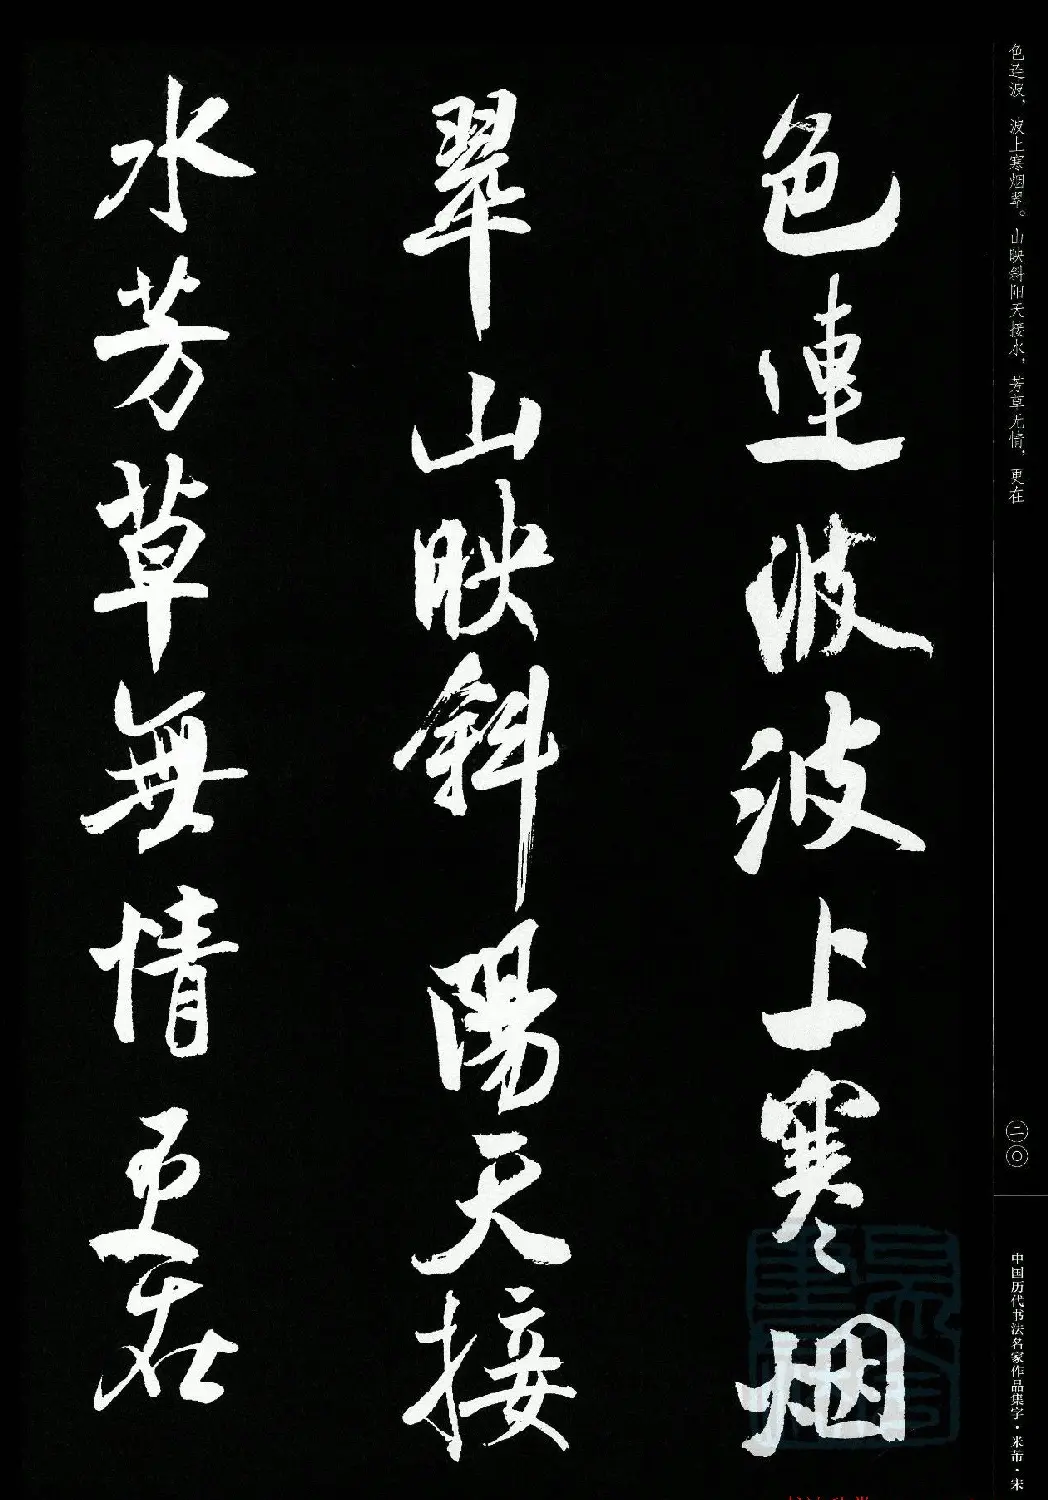 色连波，波上寒烟翠。山映斜阳天接水，芳草无情，更在
色連波波上寒烟
翠山映斜陽天接
水芳草無情更在
二〇
中国历代书法名家作品集字·米芾·宋